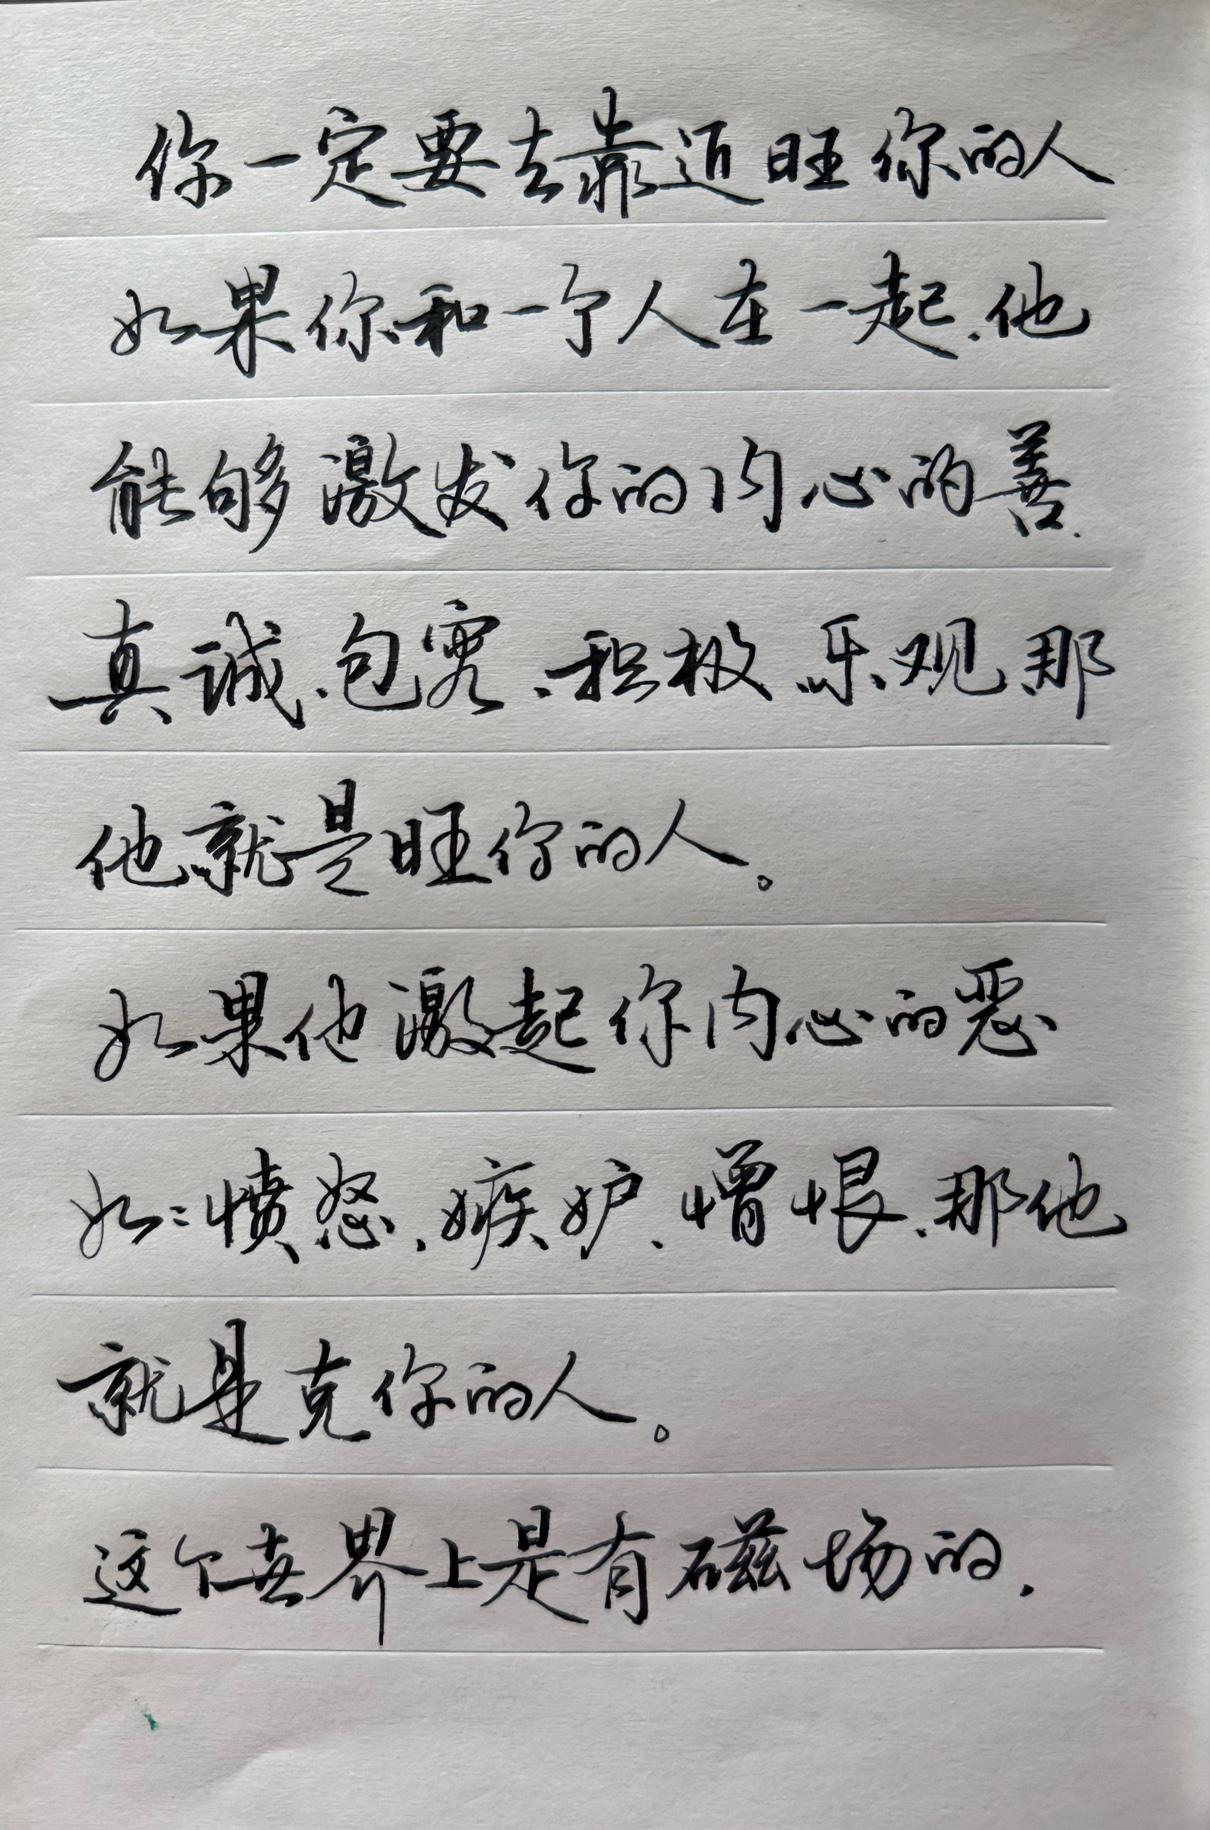 你一定要去靠近旺你的人
如果你和一个人在一起、他
能够激发你的内心的善、
真诚、包容、积极、乐观、那
他就是旺你的人。
如果他激起你内心的恶
如：愤怒、嫉妒、憎恨、那他
就是克你的人。
这个世界上是有磁场的、